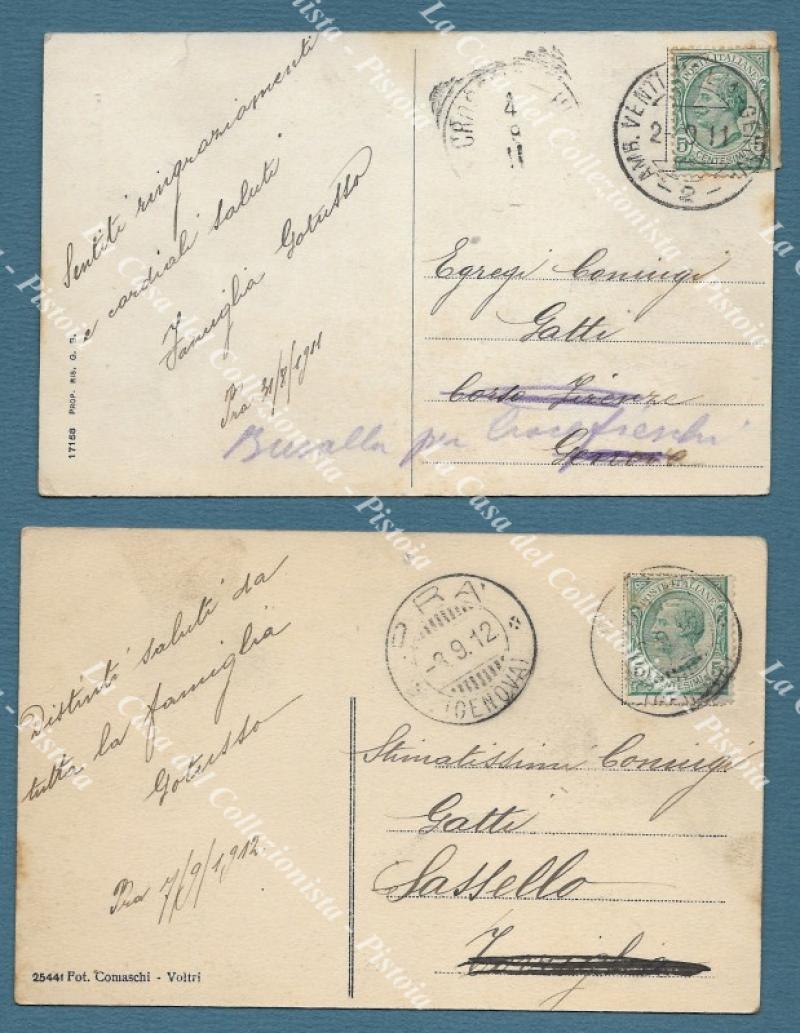 Sentiti ringraziamenti
e cordiali saluti
Famiglia Gotusso
Pra 31/8/1911
17158 PROP. RIS. G. B.
4
9
11
AMB. VENTI GENOVA
2-9 11
2
POSTE ITALIANE
CENTESIMI 5
Egregi Coniugi
Gatti
Corso Firenze
Genova
Busalla per
Distinti saluti da
tutta la famiglia
Gotusso
Pra 7/9/1912.
25441 Fot. Comaschi - Voltri
PRA'
-8.9.12
(GENOVA)
POSTE ITALIANE
CENTESIMI 5
(GENOVA)
Stimatissimi Coniugi
Gatti
Sassello
La Casa del Collezionista - Pistoia